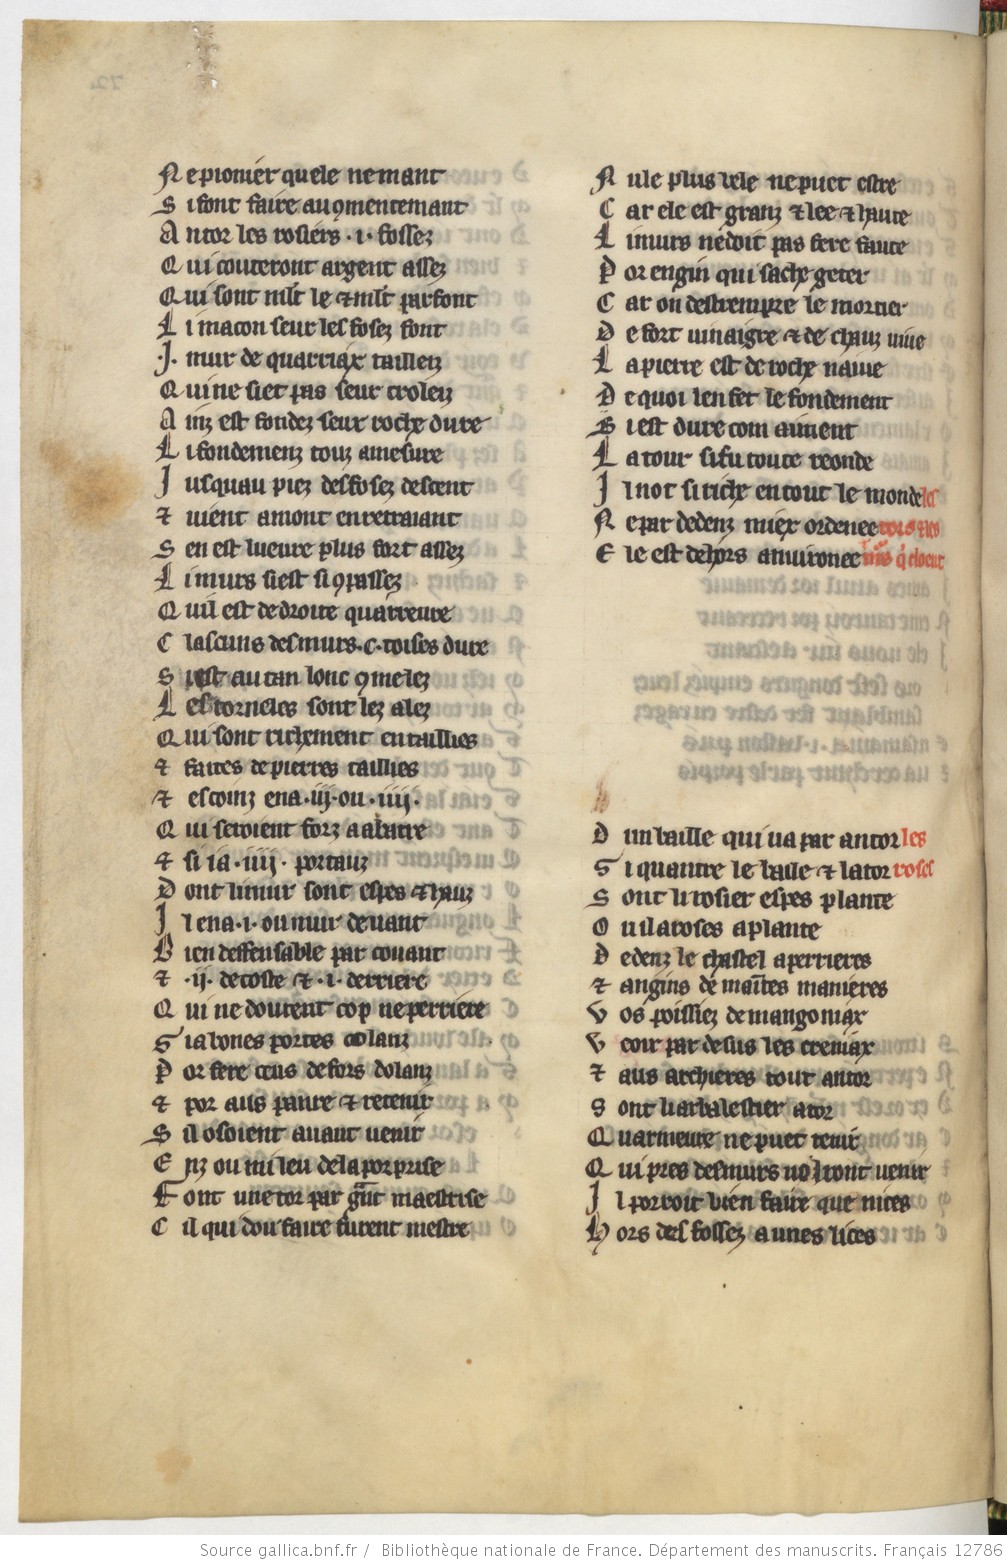 N e pionier quele ne mant
S i font faire au 9mentemant
A ntor les rosiers .i. fossez
Q ui couteront argent assez
Q ui sont ml̃t le ⁊ ml̃t parfont
L i macon seur les fosez font
.I. mur de quarriax tailleiz
Q ui ne siet pas seur croleiz
A inz est fondez seur roche dure
L i fondemenz touz a mesure
J usquau piez des fosez descent
⁊ uient amont en retraiant
S en est lueure plus fort assez
L i murs si est si 9passez
Q uil est de droite quarreure
C hascuns des murs .c. toises dure
S i est autan lonc 9me lez
L es torneles sont lez a lez
Q ui sont richement entaillies
⁊ faites de pierres taillies
⁊ es coinz en a .iij. ou .iiij.
Q ui seroient forz a abatre
⁊ si i a .iiij. portauz
D ont li mur sont espes ⁊ hauz
J l en a .i. ou mur deuant
B ien deffensable par couant
⁊ .ij. de coste ⁊ .i. derriere
Q ui ne doutent cop ne perriere
S i a bones portes colanz
P or fere ceus defors dolanz
⁊ por aus panre ⁊ retenir
S il osoient auant uenir
E nz ou milieu de la porprise
F ont une tor par gñt maestrise
C il qui dou faire furent mestre
N ule plus bele ne puet estre
C ar ele est granz ⁊ lee ⁊ haute
L i murs ne doit pas fere faute
P or engin qui sache geter
C ar on destrempre le mortier
D e fort uinaigre ⁊ de chauz uiue
L a pierre est de roche naiue
D e quoi len fet le fondement
S i est dure com aiment
L a tour si fu toute reonde
J l not si riche en tout le monde les
N e par dedenz miex ordenee tors ⁊ les
E le est dehors anuironee murs q̃ cloent
D un baille qui ua par antor les
S i quantre le baile ⁊ la tor roses
S ont li rosier espes plante
O u il a roses a plante
D edenz le chastel a perrieres
⁊ angins de maĩtes manieres
V os poissiez de mangoniax
V eoir par desus les creniax
⁊ aus archieres tout antor
S ont li arbalestier a tor
Q uarmeure ne puet tenir
Q ui pres des murs uoliront uenir
J l porroit bien faire que nices
H ors des fossez a unes lices
Source gallica.bnf.fr / Bibliothèque nationale de France. Département des manuscrits. Français 12786